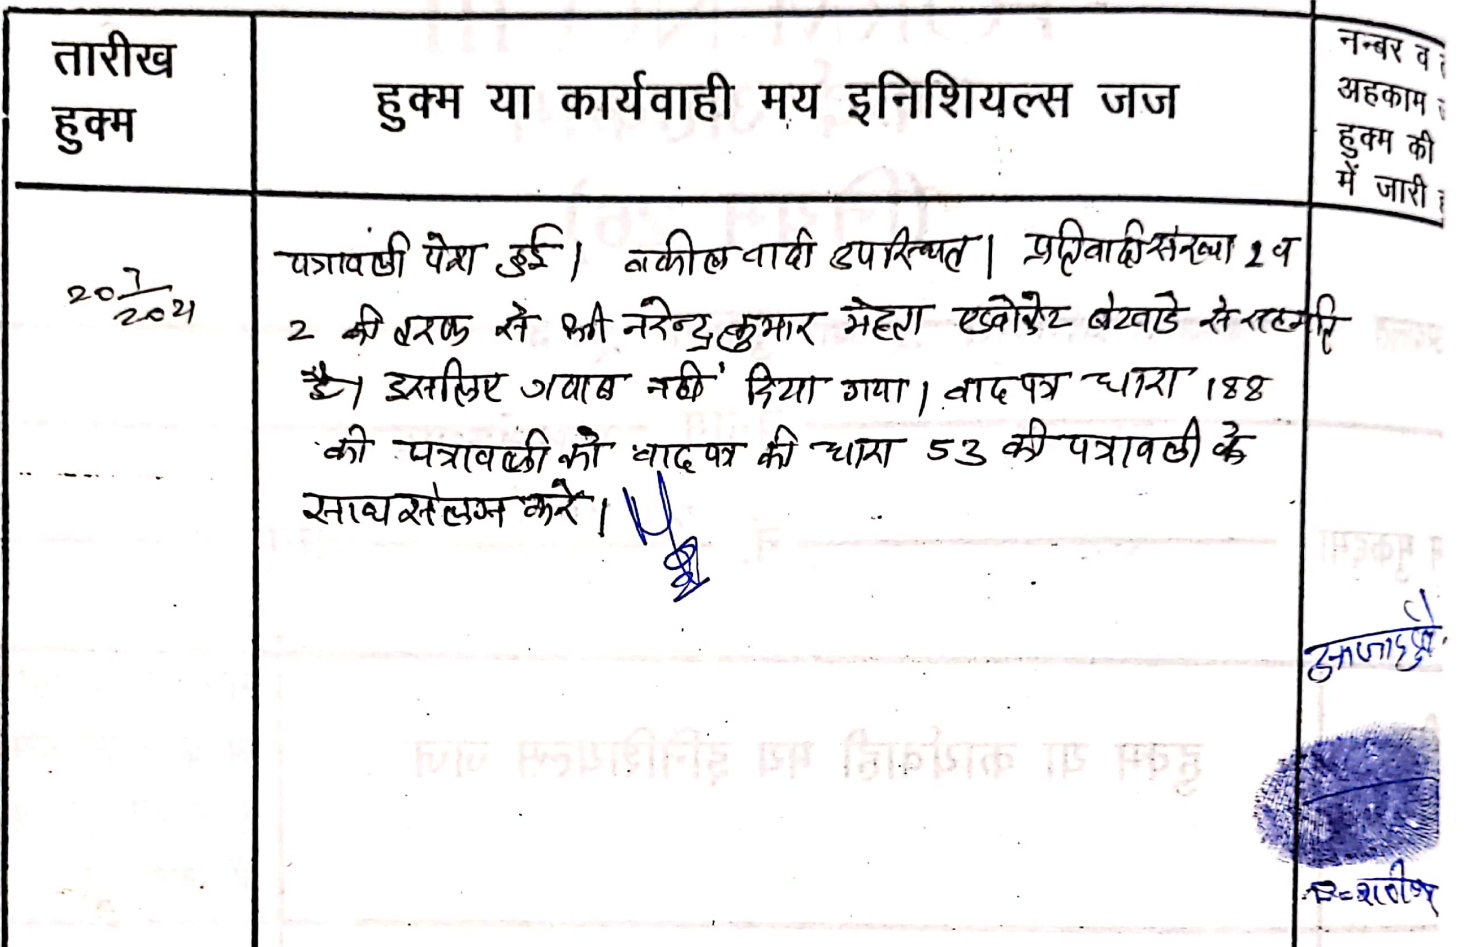 तारीख
हुक्म
हुक्म या कार्यवाही मय इनिशियल्स जज
नम्बर व
अहकाम
हुक्म की
में जारी
20/7/2021
पत्रावली पेश हुई। वकील वादी उपस्थित। प्रतिवादी संख्या 1 व
2 की तरफ से श्री नरेन्द्र कुमार मेहता एडवोकेट बंटवाडे से सहमति
है। इसलिए जवाब नहीं दिया गया। वादपत्र धारा 188
की पत्रावली को वादपत्र की धारा 53 की पत्रावली के
साथ संलग्न करे।
हुक्म या कार्यवाही मय इनिशियल्स जज